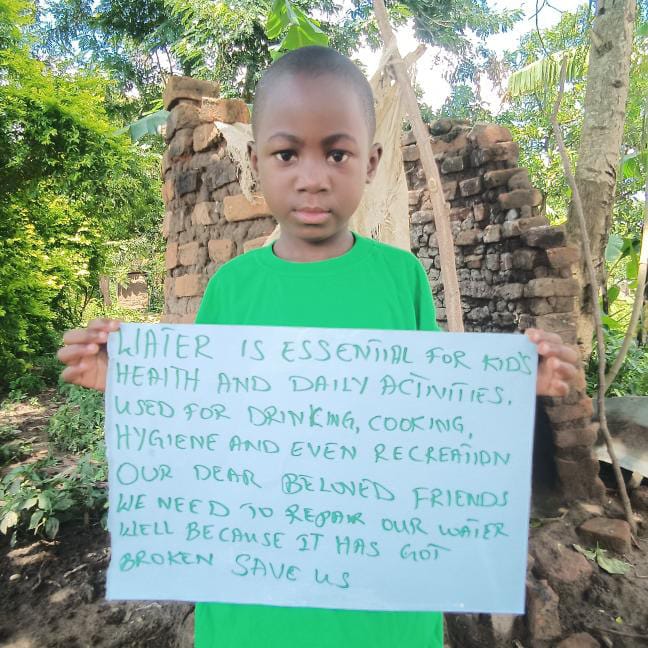 WATER IS ESSENTIAL FOR KID'S
HEALTH AND DAILY ACTIVITIES.
USED FOR DRINKING, COOKING,
HYGIENE AND EVEN RECREATION
OUR DEAR BELOVED FRIENDS
WE NEED TO REPAIR OUR WATER
WELL BECAUSE IT HAS GOT
BROKEN SAVE US